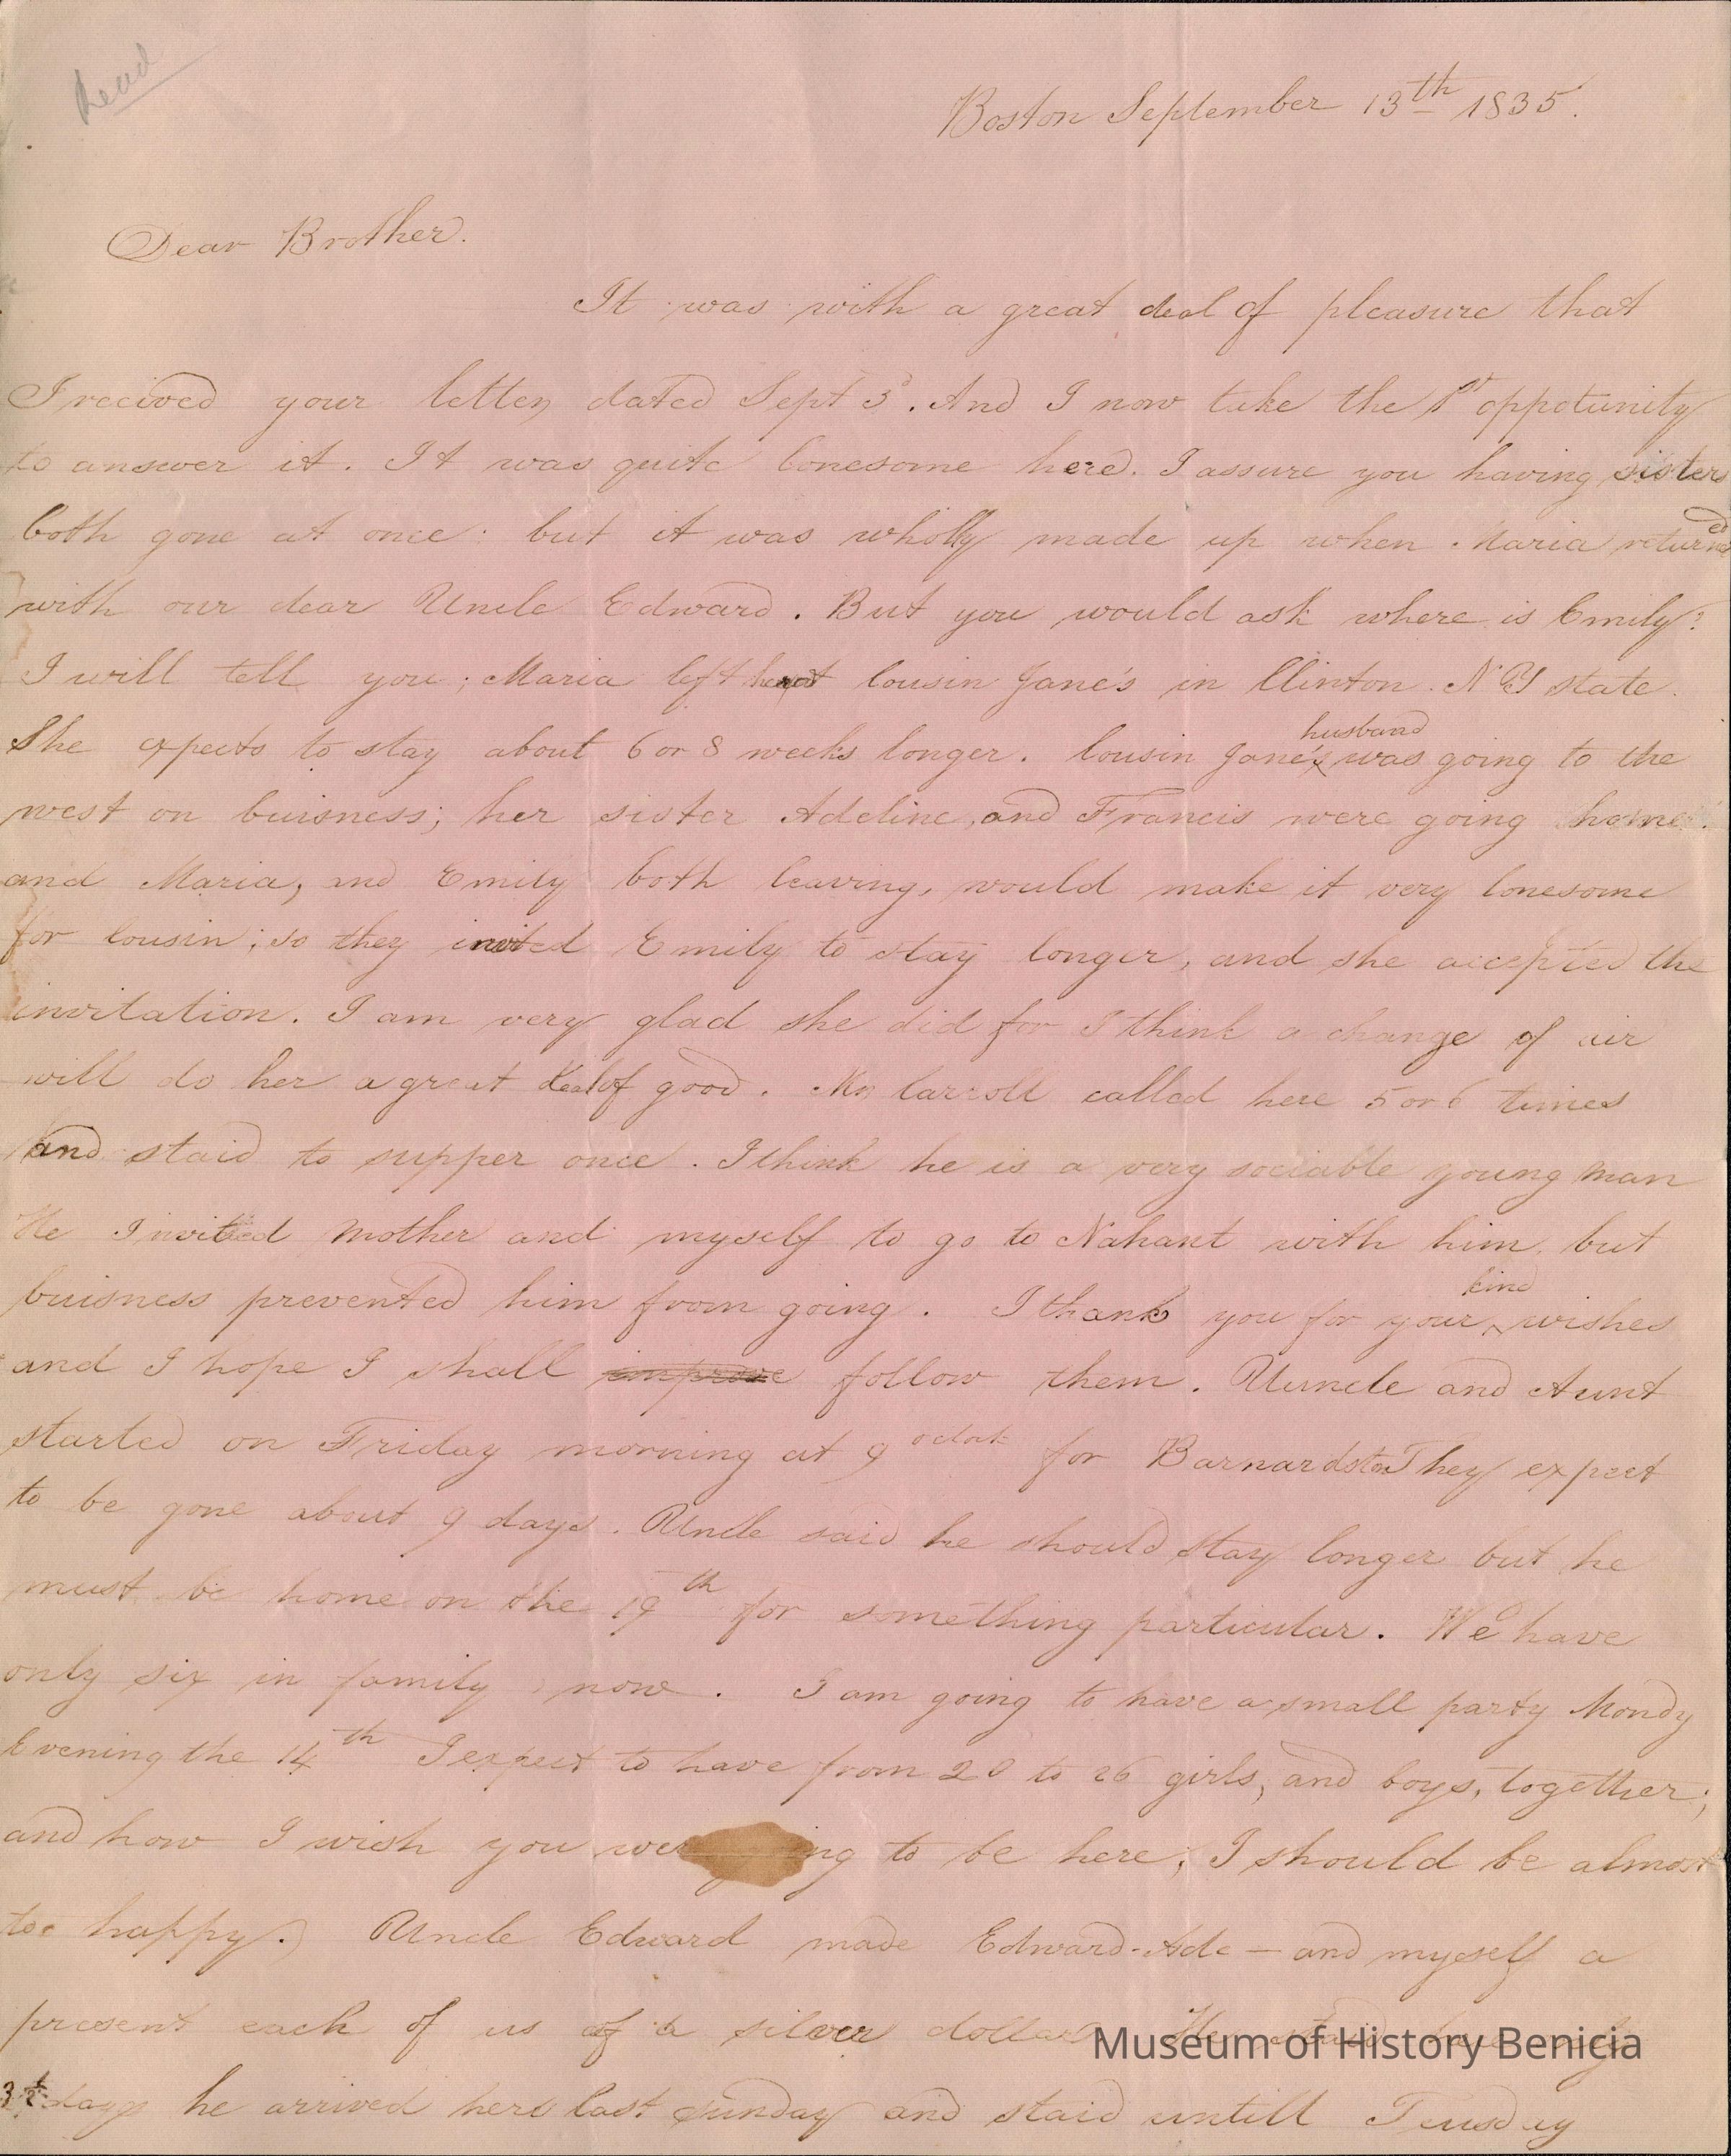 Read
Boston September 13th 1835.
Dear Brother.
It was with a great deal of pleasure that
I recived your letter, dated Sept 3d. And I now take the 1st oppotunity
to answer it. It was quite lonesome here. I assure you having sisters
both gone at once: but it was wholly made up when Maria returned
with our dear Uncle Edward. But you would ask where is Emily?
I will tell you; Maria left her at Cousin Jane's in Clinton. N Y state.
She expects to stay about 6 or 8 weeks longer. Cousin Jane's husband was going to the
west on buisness; her sister Adeline, and Francis were going home.
and Maria, and Emily both leaving, would make it very lonesome
for Cousin; so they invited Emily to stay longer, and she accepted the
invitation. I am very glad she did for I think a change of air
will do her a great deal of good. Mr Carroll called here 5 or 6 times
and staid to supper once. I think he is a very sociable young man
He Invited Mother and myself to go to Nahant with him, but
buisness prevented him from going. I thank you for your kind wishes
and I hope I shall improve follow them. Uuncle and Aunt
started on Friday morning at 9 oclok for Barnardston They expect
to be gone about 9 days. Uncle said he should stay longer but he
must be home on the 19th for something particular. We have
only six in family now. I am going to have a small party Mondy
Evening the 14th I expect to have from 20 to 26 girls, and boys, together;
and how I wish you wer ing to be here; I should be almost
too happy. Uncle Edward made Edward-Ade — and myself a
present each of us of a silver dollar He staid here only
3½ days he arrived here last Sunday and staid untill Teusday
Museum of History Benicia